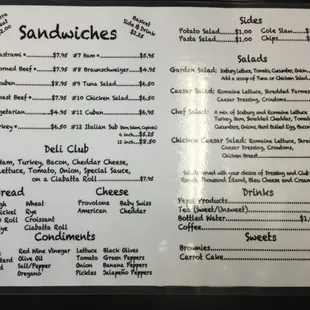 Sandwiches
Basket
Side & Drink
$2.25
$2.00
#7 Ham $6.95
$7.95
#8 Braunschweiger $4.95
Beef $7.95
#9 Tuna Salad $6.50
#10 Chicken Salad $6.50
Beef $7.95
#11 Cuban $8.95
#12 Italian Sub (Ham, Salami, Capicola)
6 inch $6.25
12 inch $8.50
Deli Club
Ham, Turkey, Bacon, Cheddar Cheese,
Lettuce, Tomato, Onion, Special Sauce,
on a Ciabatta Roll $7.95
Bread
Wheat
Rye
Croissant
Ciabatta Roll
Cheese
Provolone Baby Swiss
American Cheddar
Condiments
Red Wine Vinegar Lettuce Black Olives
Olive Oil Tomato Green Peppers
Salt/Pepper Onion Banana Peppers
Oregano Pickles Jalapeño Peppers
Sides
Potato Salad $1.00 Cole Slaw
Pasta Salad $1.00 Chips
Salads
Garden Salad: Iceburg Lettuce, Tomato, Cucumber, Onion
Add a scoop of Tuna or Chicken Salad
Caesar Salad: Romaine Lettuce, Shredded Parmesan
Caesar Dressing, Croutons
Chef Salad: A mix of Iceburg and Romaine Lettuce,
Turkey, Ham, Shredded Cheddar, Croutons,
Cucumbers, Onions, Hard Boiled Egg, Bacon
Chicken Caesar Salad: Romaine Lettuce, Shredded
Caesar Dressing, Croutons,
Chicken Breast
Salads served with your choice of Dressing and Club
Ranch, Thousand Island, Bleu Cheese and
Drinks
Pepsi Products
Tea (Sweet/Unsweet)
Bottled Water $1
Coffee
Sweets
Brownies
Carrot Cake